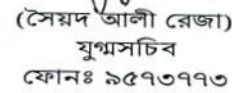 (সৈয়দ আলী রেজা)
যুগ্মসচিব
ফোনঃ ৯৫৭৩৭৭৩